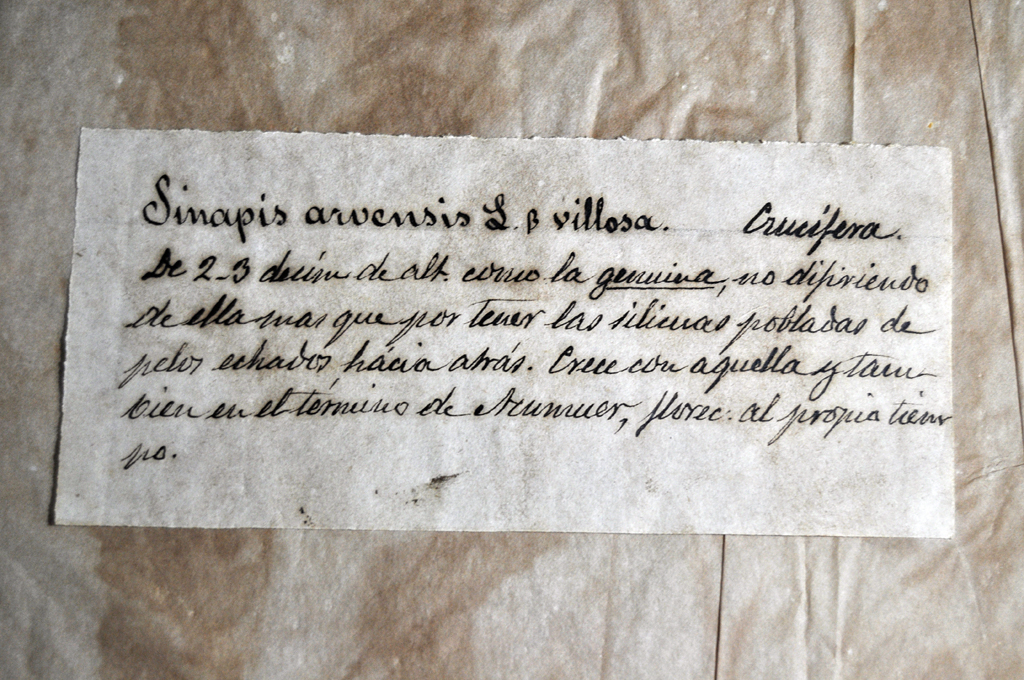 Sinapis arvensis L. β villosa. Crucífera.
De 2-3 decím de alt. como la genuina, no difiriendo
de ella mas que por tener las silicuas pobladas de
pelos echados hácia atrás. Crece con aquella y tam-
bien en el término de Anumuer, florec. al propio tiem
po.